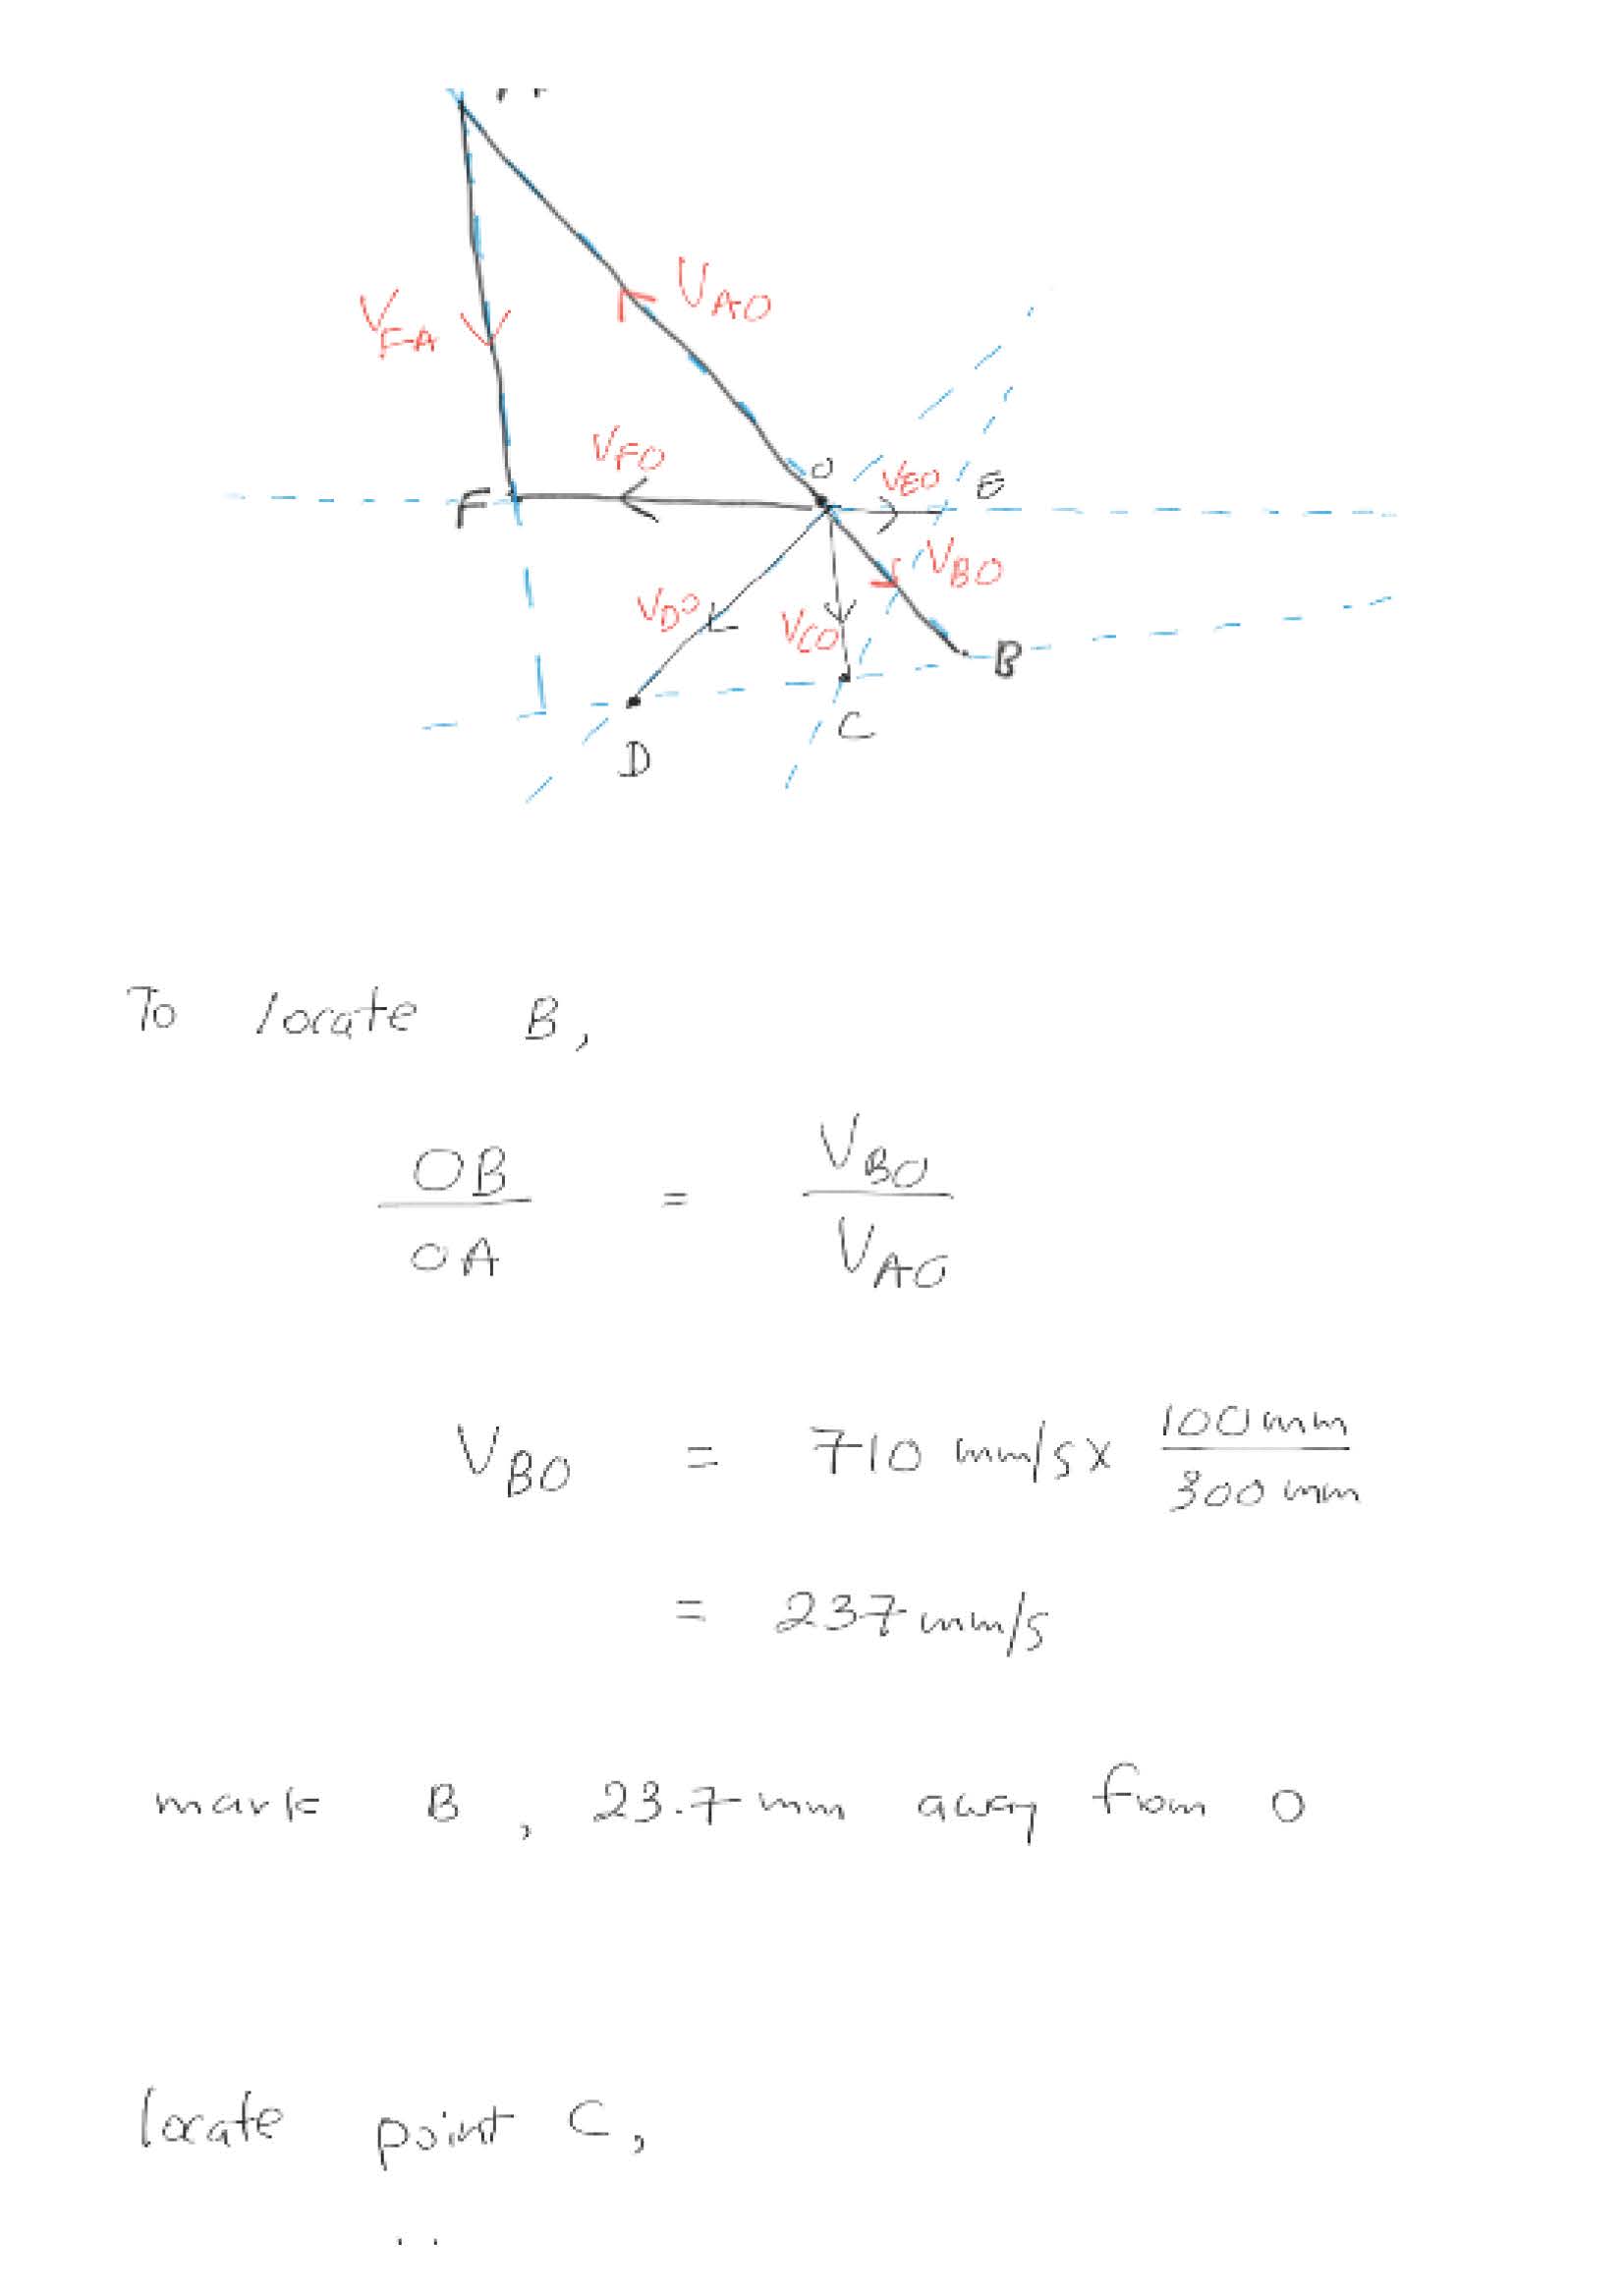 V_AO
V_FA
V_FO
O
V_EO
E
F
V_BO
V_DO
V_CO
B
C
D
To locate B,
OB / OA = V_BO / V_AO
V_BO = 710 mm/s x 100 mm / 300 mm
= 237 mm/s
mark B, 23.7 mm away from O
locate point C,